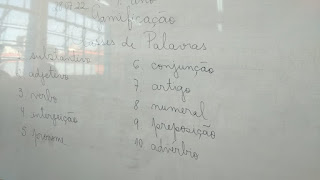 07.22 ano
Gamificação
Classes de Palavras
1. substantivo
2. adjetivo
3. verbo
4. interjeição
5. pronome
6. conjunção
7. artigo
8. numeral
9. preposição
10. advérbio